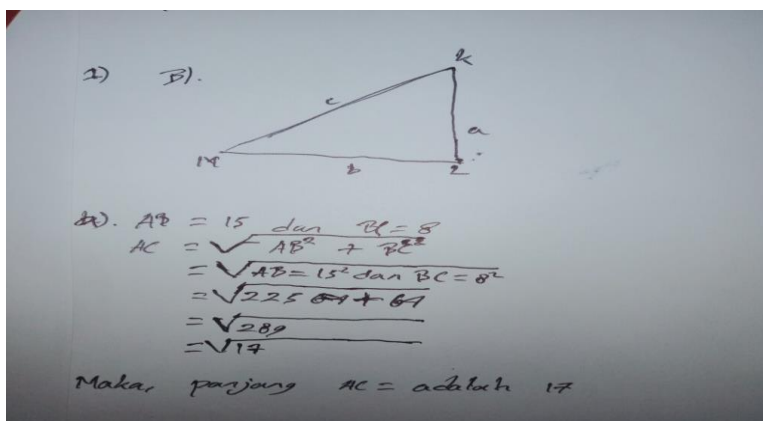 1) B).
K
c
a
M
b
L
a). AB = 15 dan BC = 8
AC = √AB² + BC²
= √AB = 15² dan BC = 8²
= √225 + 64
= √289
= √17
Maka, panjang AC = adalah 17